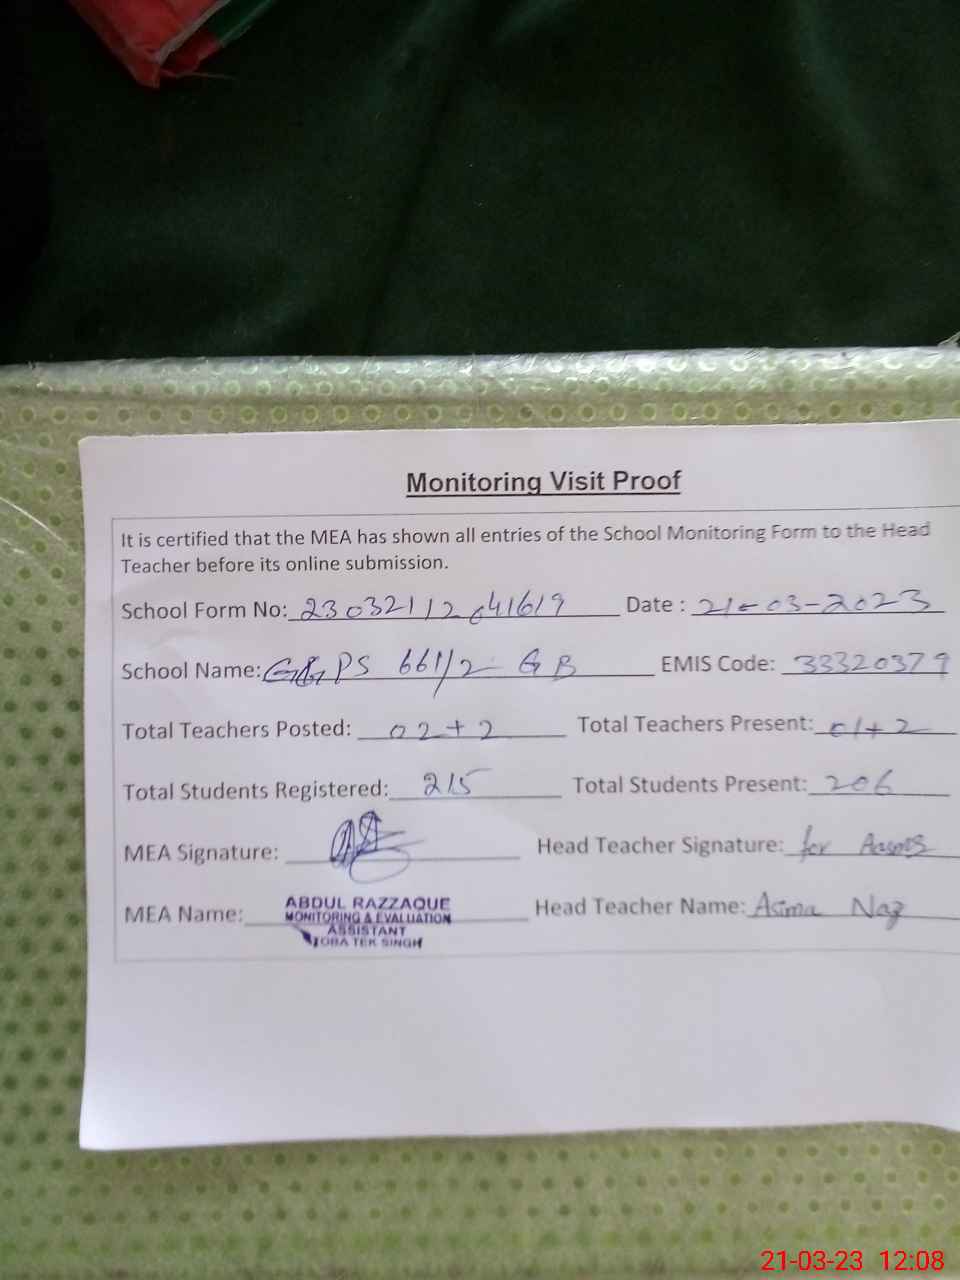 Monitoring Visit Proof
It is certified that the MEA has shown all entries of the School Monitoring Form to the Head
Teacher before its online submission.
School Form No: 23032112041619 Date : 21-03-2023
School Name: GGPS 661/2 GB EMIS Code: 33320379
Total Teachers Posted: 02+2 Total Teachers Present: 01+2
Total Students Registered: 215 Total Students Present: 206
MEA Signature: Head Teacher Signature: for
MEA Name: ABDUL RAZZAQUE Head Teacher Name: Asima Naz
MONITORING & EVALUATION
ASSISTANT
TOBA TEK SINGH
21-03-23 12:08